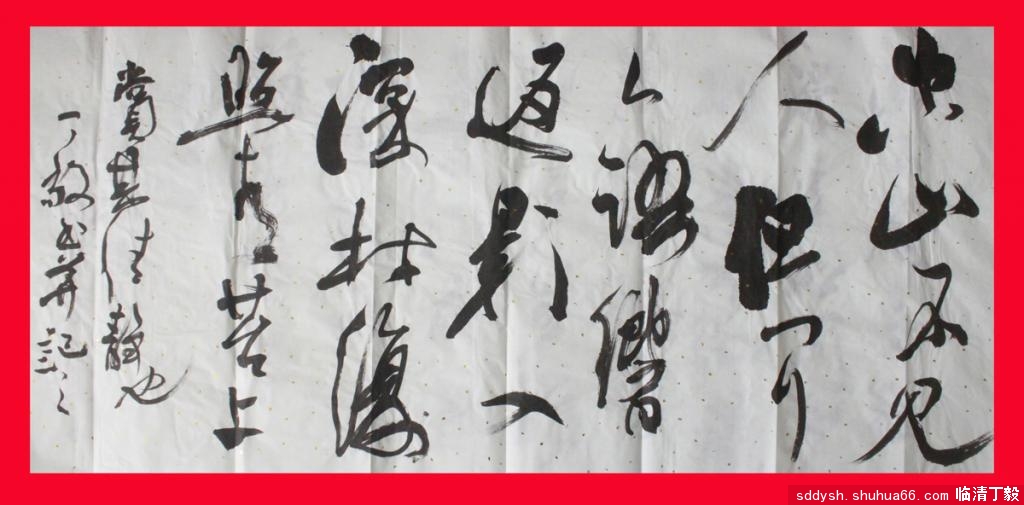 空山不见
人但闻
人語響
返影入
深林復
照青苔上
其清静也
丁毅书并记之
sddysh.shuhua66.com 临清丁毅